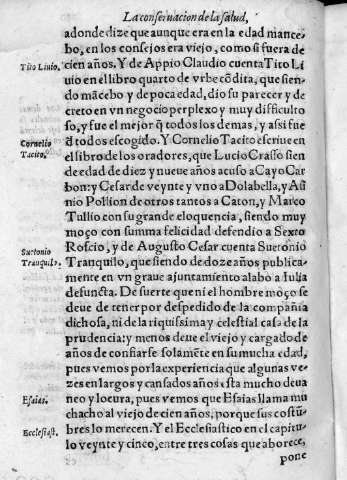 La conseruacion de la salud,
adonde dize que aunque era en la edad mance-
bo, en los consejos era viejo, como si fuera de
Tito Liuio.
cien años. Y de Appio Claudio cuenta Tito Li
uio en el libro quarto de vrbe cõdita, que sien-
do mãcebo y de poca edad, dio su parecer y de
creto en vn negocio perplexo y muy difficulto
so, y fue el mejor q̃ todos los demas, y assi fue
Cornelio
Tacito.
d̃ todos escogido. Y Cornelio Tacito escriue en
el libro de los oradores, que Lucio Crasso sien
de edad de diez y nueue años acuso a Cayo Car
bon: y Cesar de veynte y vno a Dolabella, y Asi
nio Pollion de otros tantos a Caton, y Marco
Tullio con su grande eloquencia, siendo muy
moço con summa felicidad defendio a Sexto
Suetonio
Tranquilo.
Roscio, y de Augusto Cesar cuenta Suetonio
Tranquilo, que siendo de doze años publica-
mente en vn graue ajuntamiento alabo a Iulia
defuncta. De suerte que ni el hombre moço se
deue de tener por despedido de la compañia
dichosa, ni de la riquissima y celestial casa de la
prudencia: y menos deue el viejo y cargado de
años de confiarse solamẽte en su mucha edad,
pues vemos por la experiencia que algunas ve
zes en largos y cansados años esta mucho deua
Esaias.
neo y locura, pues vemos que Esaias llama mu
chacho al viejo de cien años, porque sus costũ
Ecclesiast.
bres lo merecen. Y el Ecclesiastico en el capitu-
lo veynte y cinco, entre tres cosas que aborece,
pone